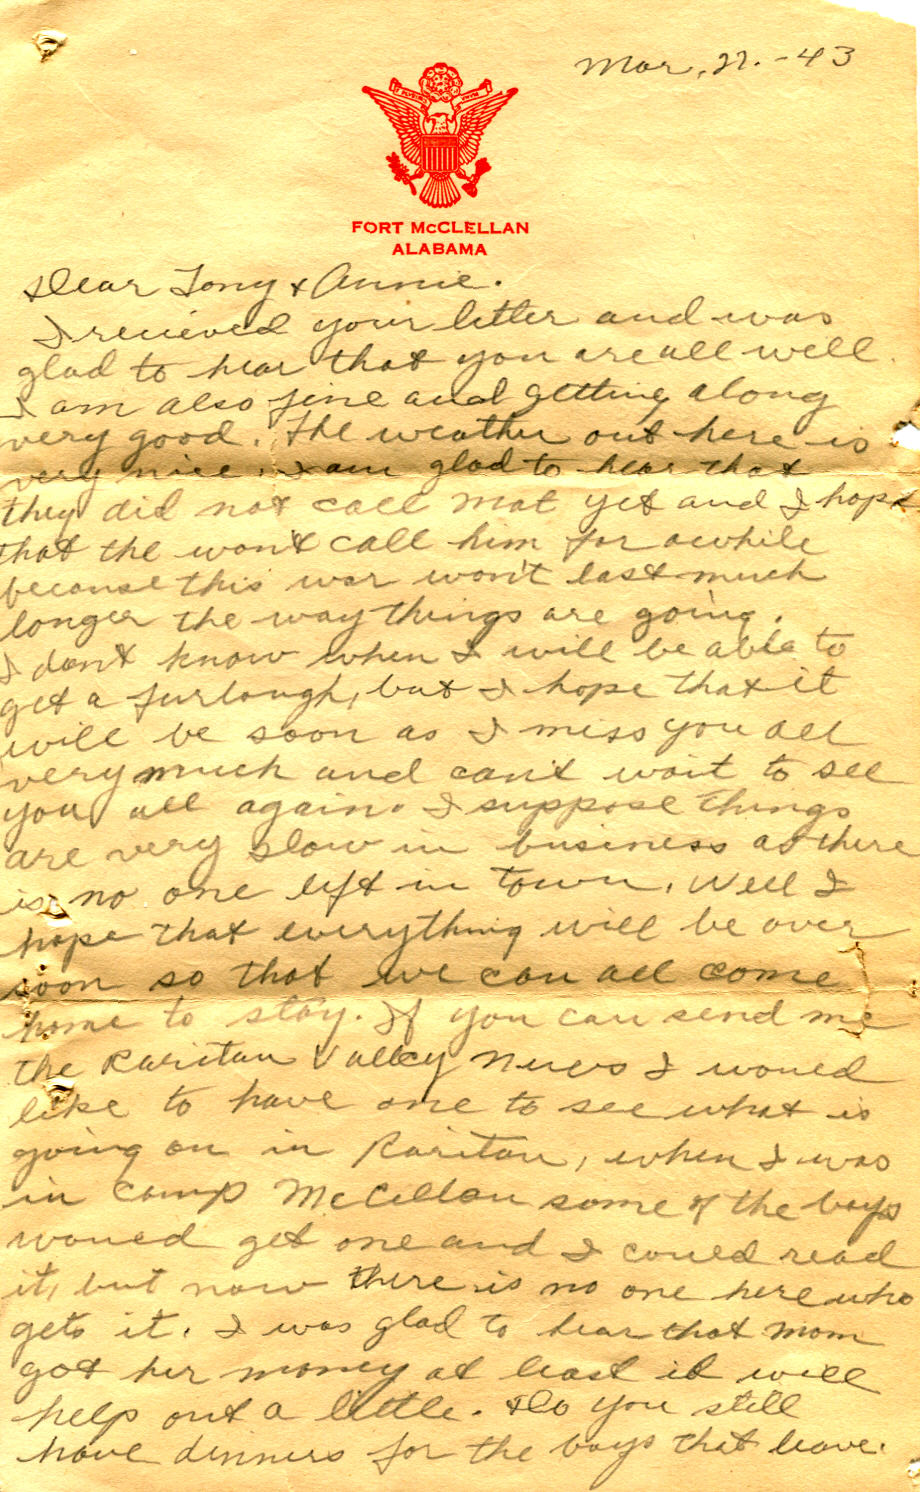 Mar. 22. - 43
FORT McCLELLAN
ALABAMA
Dear Tony & Annie.
I recieved your letter and was
glad to hear that you are all well.
I am also fine and getting along
very good. The weather out here is
very nice. I am glad to hear that
they did not call Mat yet and I hope
that the won't call him for awhile
because this war won't last much
longer the way things are going.
I don't know when I will be able to
get a furlough, but I hope that it
will be soon as I miss you all
very much and can't wait to see
you all again. I suppose things
are very slow in business as there
is no one left in town. Well I
hope that everything will be over
soon so that we can all come
home to stay. If you can send me
the Raritan Valley News I would
like to have one to see what is
going on in Raritan, when I was
in Camp McCellan some of the boys
would get one and I could read
it, but now there is no one here who
gets it. I was glad to hear that mom
got her money at least it will
help out a little. Do you still
have dinners for the boys that leave.